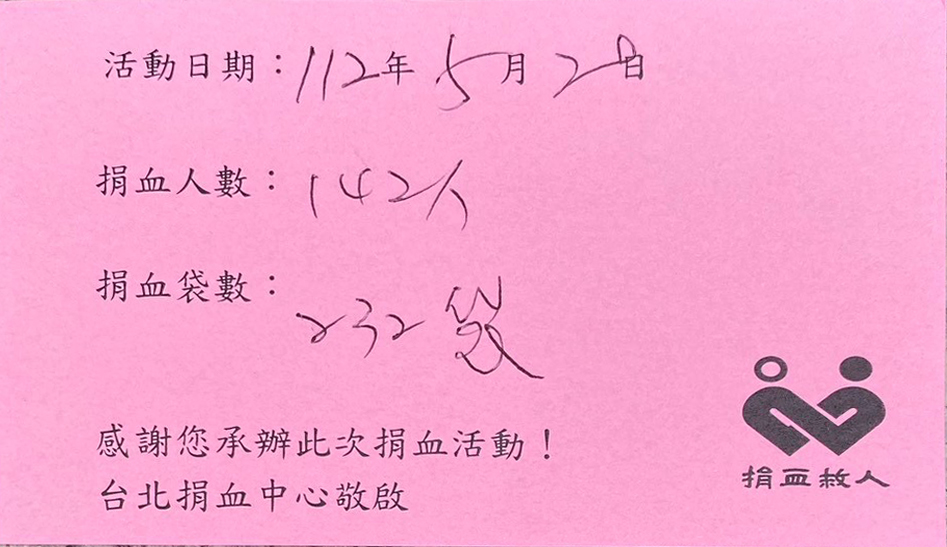 活動日期：112年5月28日
捐血人數：142人
捐血袋數：232袋
感謝您承辦此次捐血活動！
台北捐血中心敬啟
捐血救人